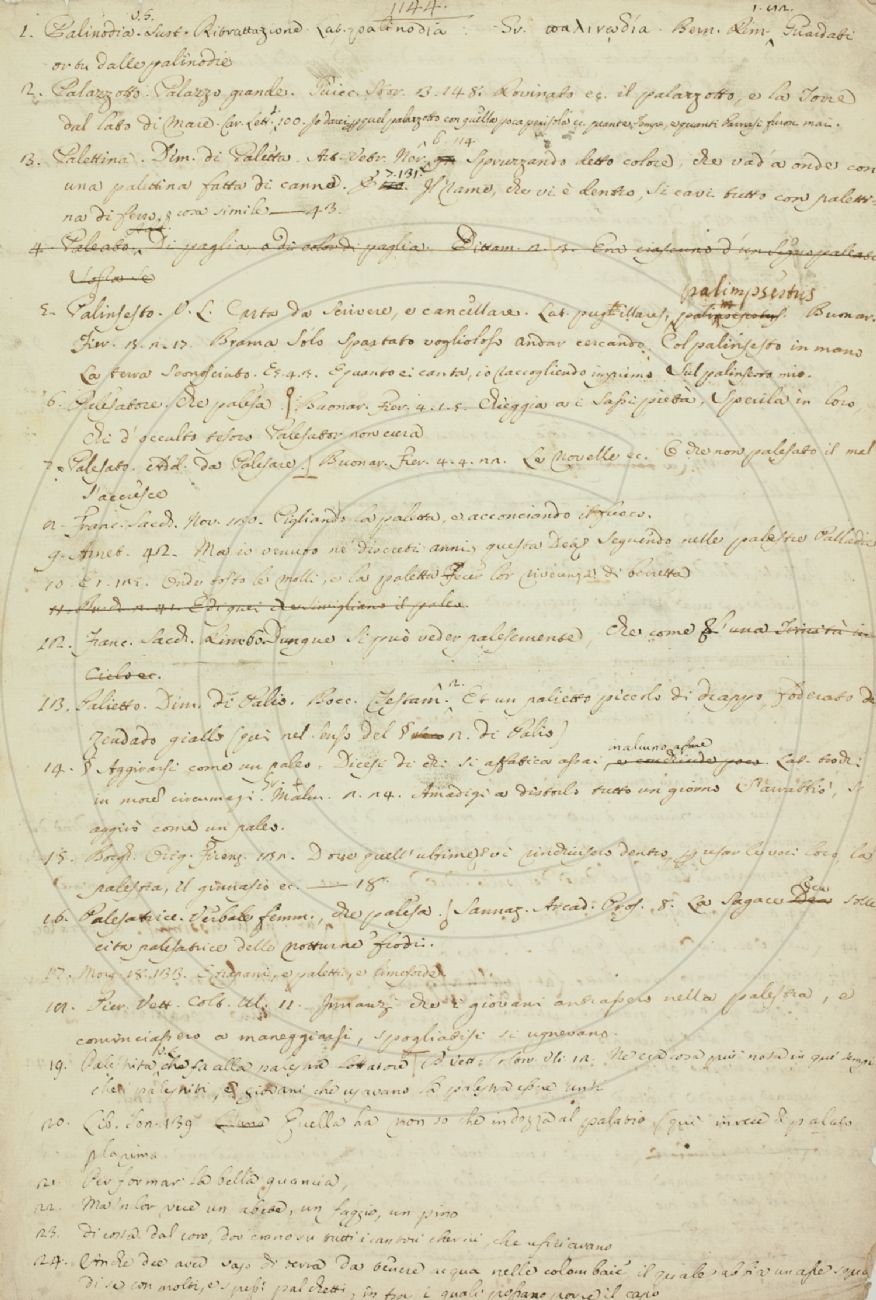 1144.
1. Palinodia. V.S. Sust. Ritrattazione. Lat. palinodia. Gr. παλινῳδία. Bern. Rim. 1. 112. Guardati
or tu dalle palinodie
2. Palazzotto. Palazzo grande. Stor. 13. 148. Rovinato ec. il palazzotto, e la Torre
dal lato di Mare. Car. Lett. 1. 100. Io darei quel palazzotto con quella poca penisola ec. quante Tempe, e quanti Parnasi furon mai.
13. Palettina. Dim. di Paletta. Art. Vetr. Ner. 6. 114. Spruzzando detto colore, che vada onde con
una palettina fatta di canne. 7. 131. Il rame, che vi è dentro, si cavi tutto con paletti-
na di ferro, o cosa simile — 43.
4. Paleato. Di paglia, o di color di paglia. Dittam. Era ciascuno d'un
5. Palinsesto. V. L. Carta da scrivere, e cancellare. Lat. pugillares, palimpsestus. Buonar.
Fier. Brama solo spastato voglioloso andar cercando Col palinsesto in mano
La terra sconosciuta. E quanto ei canta, io raccogliendo imprimo Sul palinsesto mio.
6. Palesatore. Che palesa. Buonar. Fier. 4. 1. 5. Chieggia a i sassi pietà, speri la in loro,
Chi d'occulto tesoro Palesator non cura
7. Palesato. Add. da Palesare. Buonar. Fier. 4. 4. Le novelle ec. E che non palesato il mal
s'accresce
Franc. Sacch. Nov. Pigliando la paletta, e acconciando il fuoco.
9. Amet. 42. Ma io venuto ne' dieceti anni, questa Dea seguendo nelle palestre Palladie
10. Onde tosto le molli, e la paletta Fecer lor riverenza di berretta
11. E di quei che simigliano il paleo.
112. Franc. Sacch. Dunque si può veder palesemente, che come una Trinità in
Cielo ec.
113. Palietto. Dim. di Palio. Bocc. Testam. 2. Et un palietto piccolo di drappo, foderato di
zendado giallo (qui nel senso del n. di Palio)
14. § Aggirarsi come un paleo. Dicesi di chi si affatica assai, e conchiude poco. Lat. trochi
in morem circumagi. Malm. Amadigi a distorlo tutto un giorno S'arrabbiò, si
aggirò come un paleo.
15. Borgh. Orig. Firenz. Dove quell'ultime vi dentro, usar le voci loro, la
palestra, il ginnasio ec. — 18
16. Palesatrice. Verbale femm., che palesa. Sannaz. Arcad. Pros. 8. La sagace Oca solle
cita palesatrice delle notturne frodi.
17. Morg. 18. 133. E trapani, e paletti, e lime sorde.
Pier. Vett. Colt. Ul. 11. Innanzi che i giovani entrassero nella palestra, e
cominciassero a maneggiarsi, spogliatisi si ugnevano.
19. Palestrita. che fa alla palestra lottatore. Vett. Colt. Uli. Ne era cosa più nota in que' tempi
che i palestriti, e giovani che usavano la palestra esser unti
20. Lib. Son. 139 Quella ha non so che indozza al palatio (qui in vece di palato
per rima.
21. Per formar la bella guancia,
22. Ma 'n lor vece un abete, un faggio, un pino
23. di costa dal coro, dov'erano su tutti i cantori cherici, che ufiziavano
24. Anche dee aver vaso di terra da bevere acqua nelle colombaie il quale abbia un asse sopra
di se con molti, e spessi palchetti, in tra i quali possano porre il capo